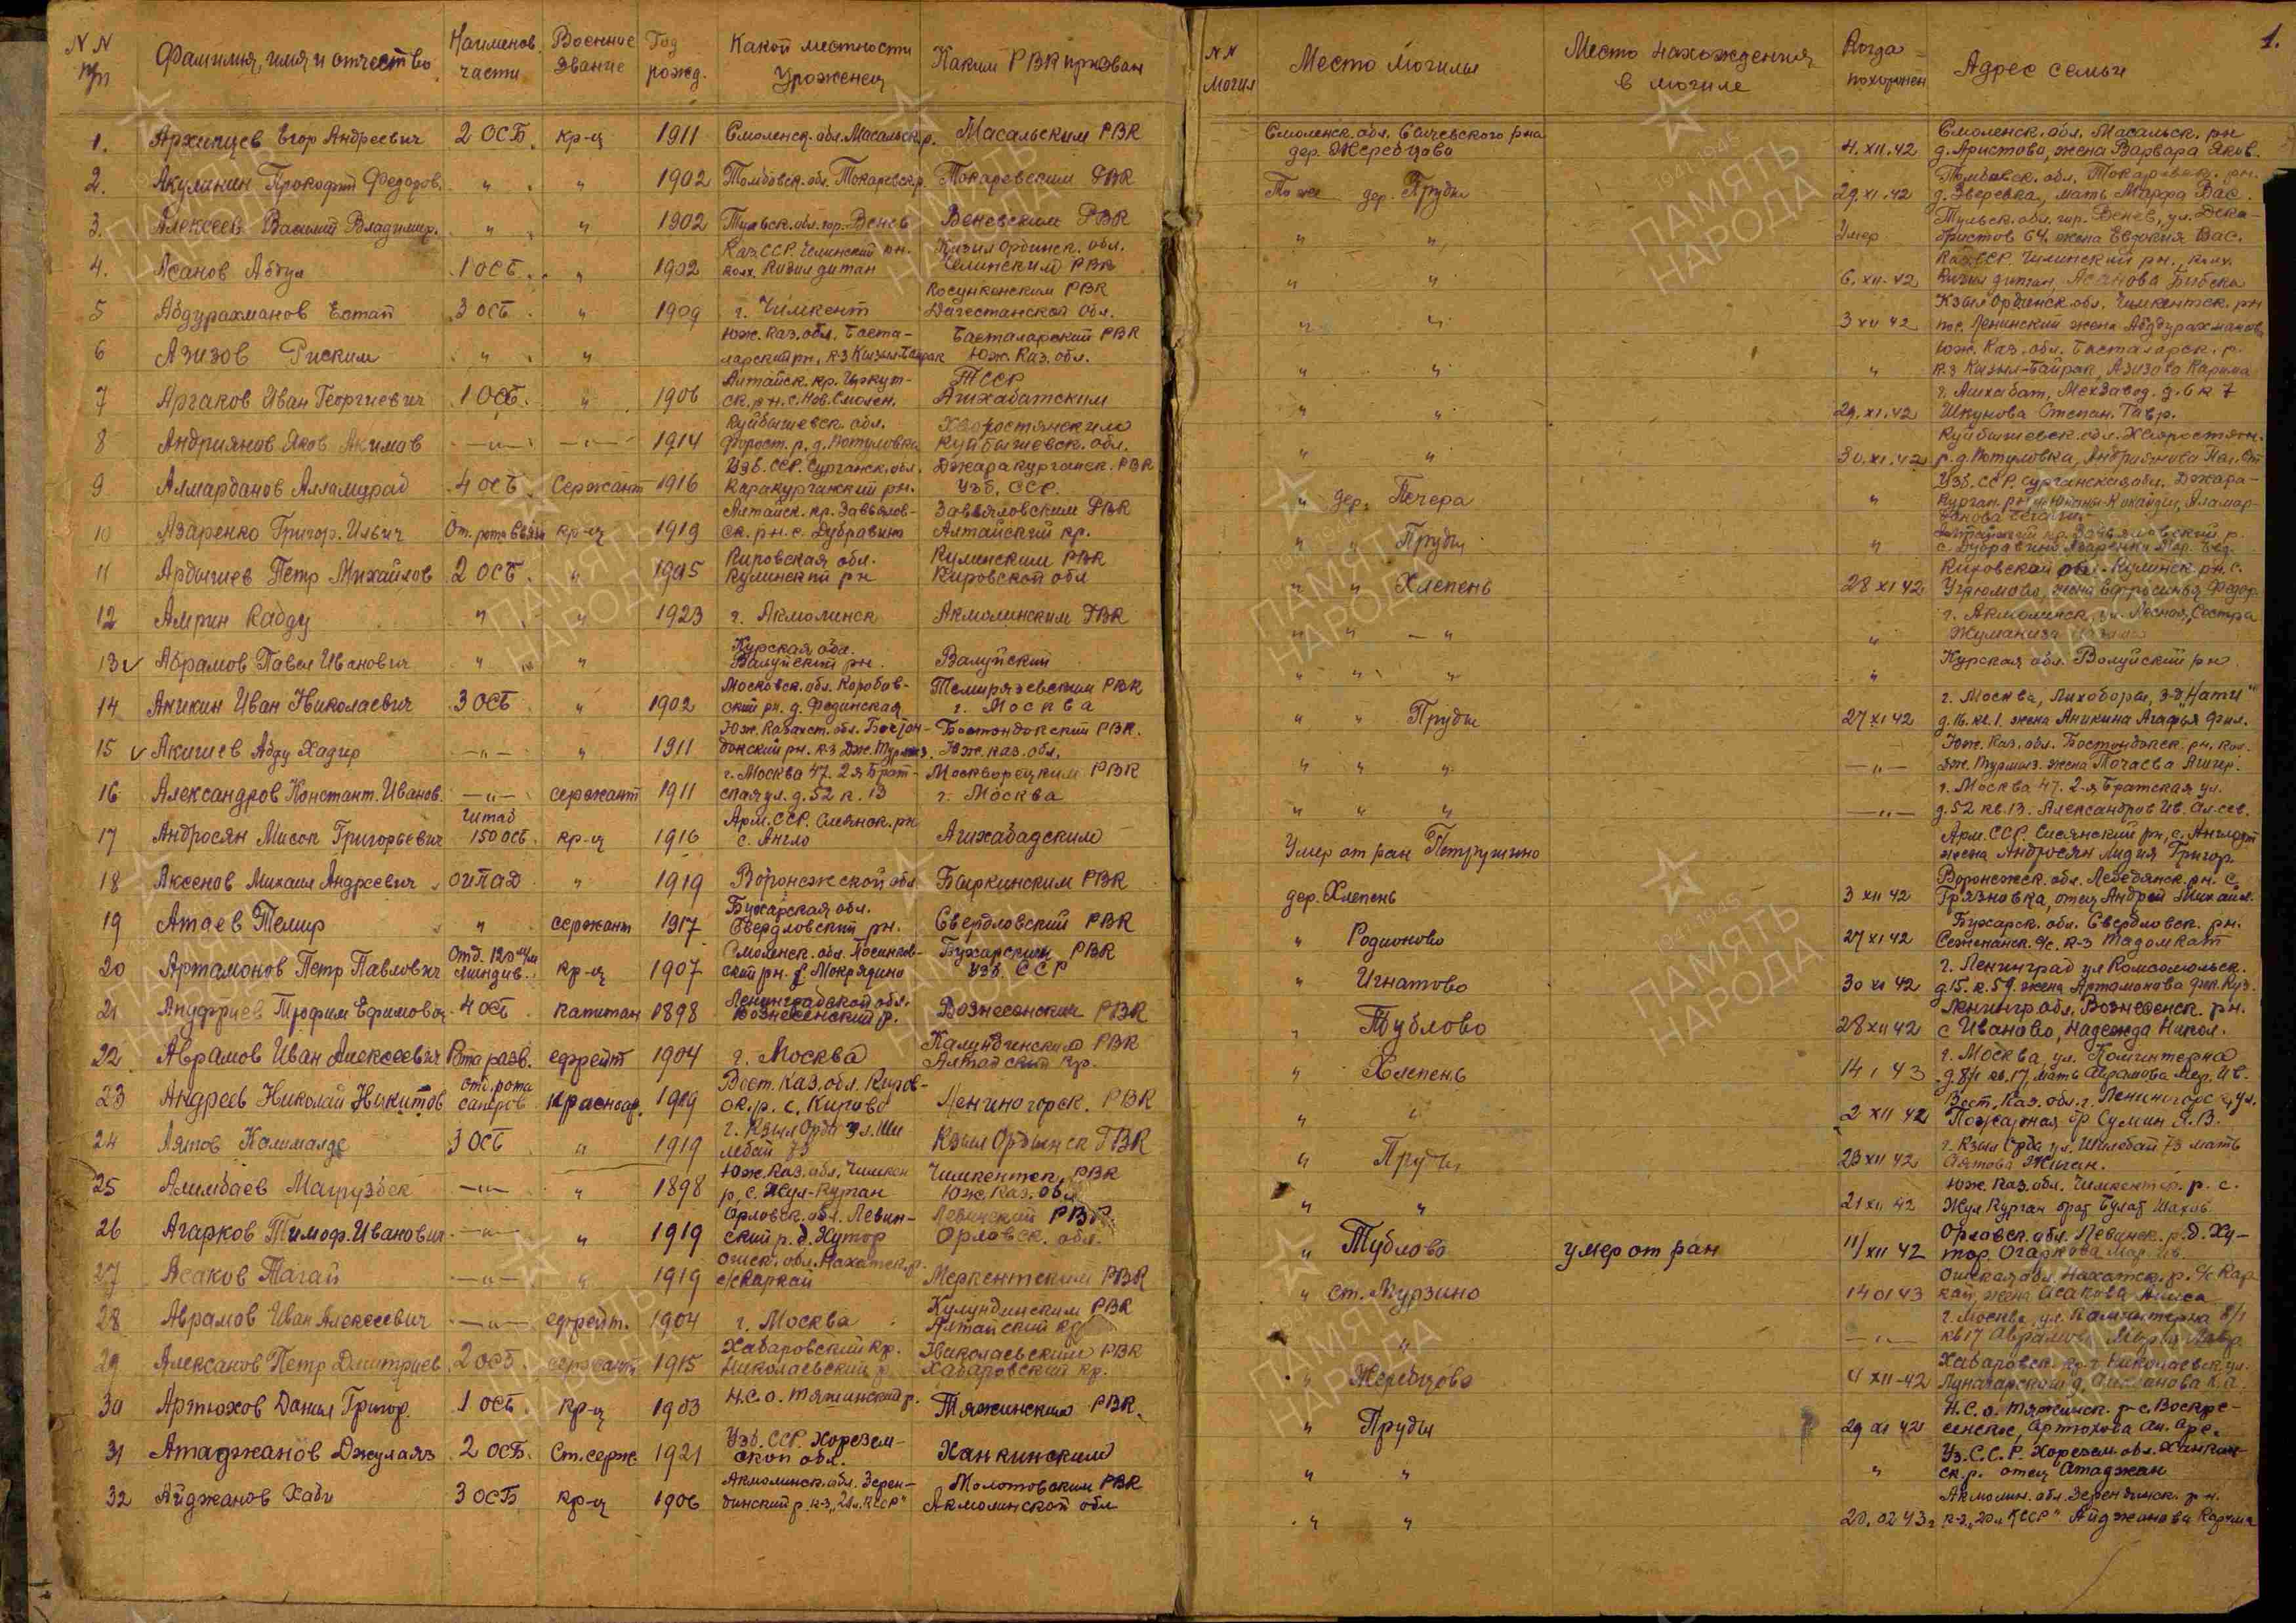 1.
N N п/п Фамилия, имя и отчество Наименов. части Военное звание Год рожд. Какой местности Уроженец Каким РВК призван N.N Могил Место Могилы Место нахождения в могиле Когда похоронен Адрес семьи
1. Архипцев Егор Андреевич 2 ОСБ. кр-ц 1911 Смоленск. обл. Масальск. р. Масальским РВК Смоленск. обл. Сычевского р-на дер. Жеребцово 4.XII.42 Смоленск. обл. Масальск. рн д. Аристово, жена Варвара Яков.
2. Акулинин Прокофий Федоров. " " 1902 Томбовск. обл. Токаревск. р. Токаревским РВК То же дер. Пруды 29.XI.42 Томбовск. обл. Токаревск. рн. д. Зверевка, мать Марфа Вас.
3. Алексеев Василий Владимир. " " 1902 Тульск. обл. гор. Венев Веневским РВК " " Умер Тульск. обл. гор. Венев, ул. Декабристов 64. жена Евдокия Вас.
4. Асанов Абдул 1 ОСБ. " 1902 Каз.ССР. Челинский рн. колх. Кизил дитан Кизил Ординск. обл. Челинским РВК " " 6.XII.42 Каз.ССР. Чилинский рн., колх. Кизил дитан, Асанова Бибска
5 Абдурахманов Естай 3 ОСБ. " 1909 г. Чимкент Косункенским РВК Дагестанской обл. " " 3 XII 42 Кзыл Ординск. обл. Чимкентск. рн пос. Ленинский жена Абдурахманова
6 Азизов Риским " " Юж. Каз. обл. Баста- ларский рн, к-з Кызыл-Байрак Басталарский РВК Юж. Каз. обл. " " " Юж. Каз. обл. Басталарск. р. к-з Кызыл-Байрак, Азизова Карима
7 Аргаков Иван Георгиевич 1 ОСБ. " 1906 Алтайск. кр. ск. р-н. с. Нов. Смолен. ТССР Ашхабатским " " 29.XI.42 г. Ашхабат, Мехзавод. д. 6 к 7 Шкунова Степан. Гавр.
8 Андриянов Яков Акимов —"— —"— 1914 Куйбышевск. обл. Форост. р. д. Потуловка Хворостянским Куйбышевск. обл. " " 30.XI.42 Куйбышевск. обл. Хворостян. р. д. Потуловка, Андриянова
9 Алмарданов Алламурад 4 ОСБ Сержант 1916 Узб. ССР. Сурганск. обл. Каракурганский рн. Джаракурганск. РВК Узб. ССР. " дер. Печера " Узб. ССР. Сурганская обл. Джара- курган. рн
10 Азаренко Григор. Ильич От. рота связи кр-ц 1919 Алтайск. кр. Завьялов- ск. рн. с. Дубравино Завьяловским РВК Алтайский кр. " " Пруды " Алтайский кр. Завьяловский р. с. Дубравино Азаренко
11 Ардышев Петр Михайлов 2 ОСБ. " 1905 Кировская обл. Кулинский рн Куминским РВК Кировской обл " " Хлепень 28 XI 42 Кировской обл. Куминск. рн. с. жена Ефросинья Федор.
12 Амрин Кабду " " 1923 г. Акмолинск Акмолинским ГВК " " — " " г. Акмолинск, ул. Лесная, Сестра
13 ✓ Абрамов Павел Иванович " " Курская обл. Валуйский рн. Валуйский " " " " Курская обл. Волуйский рн
14 Аникин Иван Николаевич 3 ОСБ " 1902 Московск. обл. Коробов- ский рн. д. Фединская Темирязевским РВК г. Москва " " Пруды 27 XI 42 г. Москва, Лихоборы, з-д „Нати" д. 16. кв. 1. жена Аникина Агафья Фил.
15 ✓ Акишев Абду Хадир —"— " 1911 Юж. Казахст. обл. Бостон- докский рн. к-з Дж. Турмыз. Бостондокский РВК. Юж. каз. обл. " " " —"— Юж. Каз. обл. Бостондокск. рн. кол. Дж. Турмыз. жена
16 Александров Констант. Иванов. —"— сержант 1911 г. Москва 47. 2-я Брат- ская ул. д. 52 к. 13 Москворецким РВК г. Москва " " " —"— г. Москва 47. 2-я Братская ул. д. 52 кв. 13. Александров Ив. Ал-сев.
17 Андросян Мисок Григорьевич Штаб 150 ОСБ. кр-ц 1916 Арм. ССР. рн с. Англо Ашхабадским Умер от ран Петрушино Арм. ССР. рн, с. жена Андросян Лидия Григор.
18 Аксенов Михаил Андреевич ОИПАД " 1919 Воронежской обл Быркинским РВК дер. Хлепень 3 XII 42 Воронежск. обл. Лебедянск. рн. с. Грязновка, отец Андрей Михайл.
19 Атаев Темир " сержант 1917 Бухарская обл. Свердловский рн. Свердловский РВК " Родионово 27 XI 42 Бухарск. обл. Свердловск. рн. к-з
20 Артамонов Петр Павлович Отд. 120 м/м миндив. кр-ц 1907 Смоленск. обл. ский рн. д. Мокрядино Бухарским РВК Узб. ССР " Игнатово 30 XI 42 г. Ленинград ул Комсомольск. д. 15. к. 59. жена Артамонова
21 Ануфриев Трофим Ефимович 4 ОСБ капитан 1898 Ленинградской обл. Вознесенский р. Вознесенским РВК " Тублово 28 XII 42 Ленингр. обл. Вознесенск. рн. с Иваново, Надежда Никол.
22 Аврамов Иван Алексеевич Рота разв. ефрейт 1904 г. Москва РВК Алтайский кр. " Хлепень 14 1 43 г. Москва, ул. Коминтерна д. 8/1 кв. 17, мать Аврамова Мар. Ив.
23 Андреев Николай Никитов отд. рота саперов красноар. 1919 Вост. Каз. обл. Киров- ск. р. с. Кирово Лениногорск. РВК " " 2 XII 42 Вост. Каз. обл. г. Лениногорск, ул. Пожарная Сумин Я.В.
24 Аятов Калималде 3 ОСБ " 1919 г. Кзыл Орда ул. Ши лебай 73 Кзыл Ординск ГВК " Пруды 23 XII 42 г. Кзыл Орда ул. Шилебай 73 мать Аятова
25 Алимбаев —"— " 1898 Юж. Каз. обл. Чимкен р, с. Жул-Курган Чимкентск, РВК Юж. Каз. обл " " 21 XII 42 Юж. Каз. обл. Чимкентск. р. с. Жул Курган брат Булат
26 Агарков Тимоф. Иванович —"— " 1919 Орловск. обл. Левин- ский р. д. Хутор Левинский РВК. Орловск. обл. " Тублово умер от ран 11/XII 42 Орловск. обл. Левинск. р. д. Ху- тор. Огаркова Мар. Ив.
27 Асаков Тагай —"— " 1919 Ошск. обл. р. с/с Каркай Меркентским РВК " ст. Мурзино 14 01 43 Ошская обл. р. с/с Кар кай, жена Асакова
28 Аврамов Иван Алексеевич —"— ефрейт. 1904 г. Москва Кулундинским РВК Алтайский кр " —"— г. Москва, ул. Каминтерна 8/1 кв 17 Аврамова
29 Алексанов Петр Дмитриев 2 ОСБ сержант 1915 Хабаровский кр. Николаевский р Николаевским РВК Хабаровский кр. " Жеребцово 4 XII-42 Хабаровск. кр. г. Николаевск ул. Луначарского
30 Артюхов Данил Григор. 1 ОСБ. кр-ц 1903 Н.С.О. Тяжинский р. Тяжинским РВК. " Пруды 29 XI 42 Н.С.О. Тяжинск. р-с. Воскре- сенское, Артюхова
31 Атаджанов Джулаяз 2 ОСБ. Ст. серж. 1921 Узб. ССР. Хорезем- ской обл. Ханкинским " " " Уз. С.С.Р. Хорезем. обл. Ханкин- ск. р. отец Атаджан
32 Айджанов Хаби 3 ОСБ кр-ц 1906 Акмолинск. обл. Зерен- динский р. к-з „20 л. КССР" Молотовским РВК Акмолинской обл " " 20.02 43г Акмолин. обл. Зерендинск. рн. к-з „20 л КССР" Айджанова
ПАМЯТЬ НАРОДА